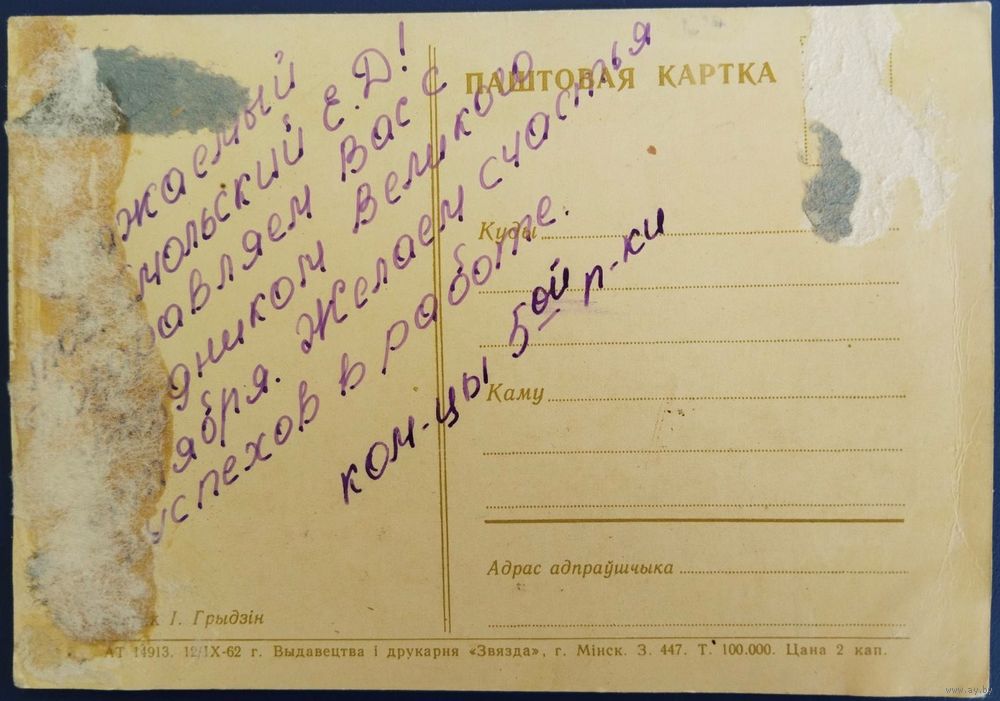 жаемый
мольский Е.Д!
равляем Вас с
дником Великого
ября. Желаем счастья
успехов в работе.
ком-цы 5ой р-ки
ПАШТОВАЯ КАРТКА
Куды
Каму
Адрас адпраўшчыка
к І. Грыдзін
АТ 14913. 12/IX-62 г. Выдавецтва і друкарня «Звязда», г. Мінск. З. 447. Т. 100.000. Цана 2 кап.
www.ay.by